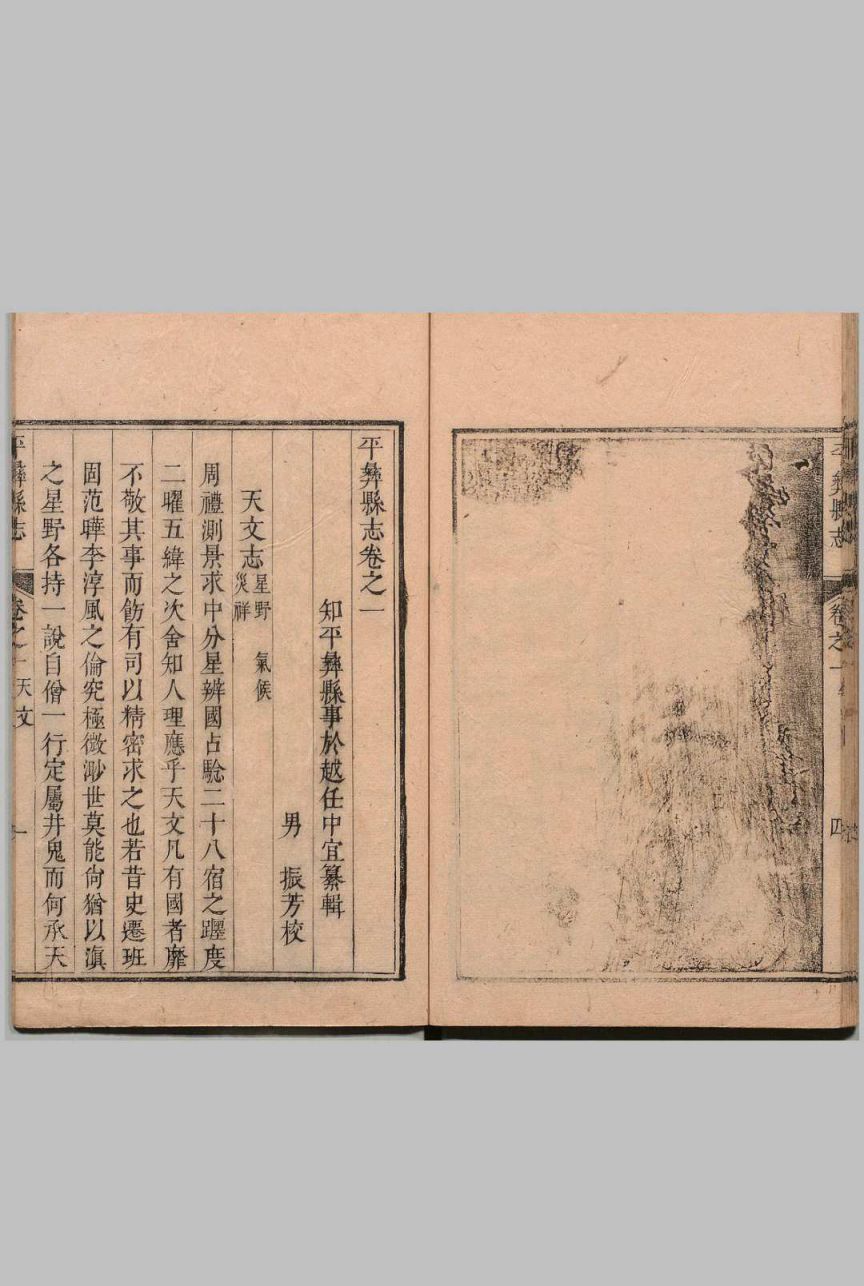 平彝縣志
卷之一
四
平彝縣志卷之一
知平彝縣事於越任中宜纂輯
男 振芳校
天文志 星野 氣候 災祥
周禮測景求中分星辨國占驗二十八宿之躔度
二曜五緯之次舍知人理應乎天文凡有國者靡
不敬其事而飭有司以精密求之也若昔史遷班
固范曄李淳風之倫究極微渺世莫能尙猶以滇
之星野各持一說自僧一行定屬井鬼而何承天
平彝縣志
卷之一
天文
一